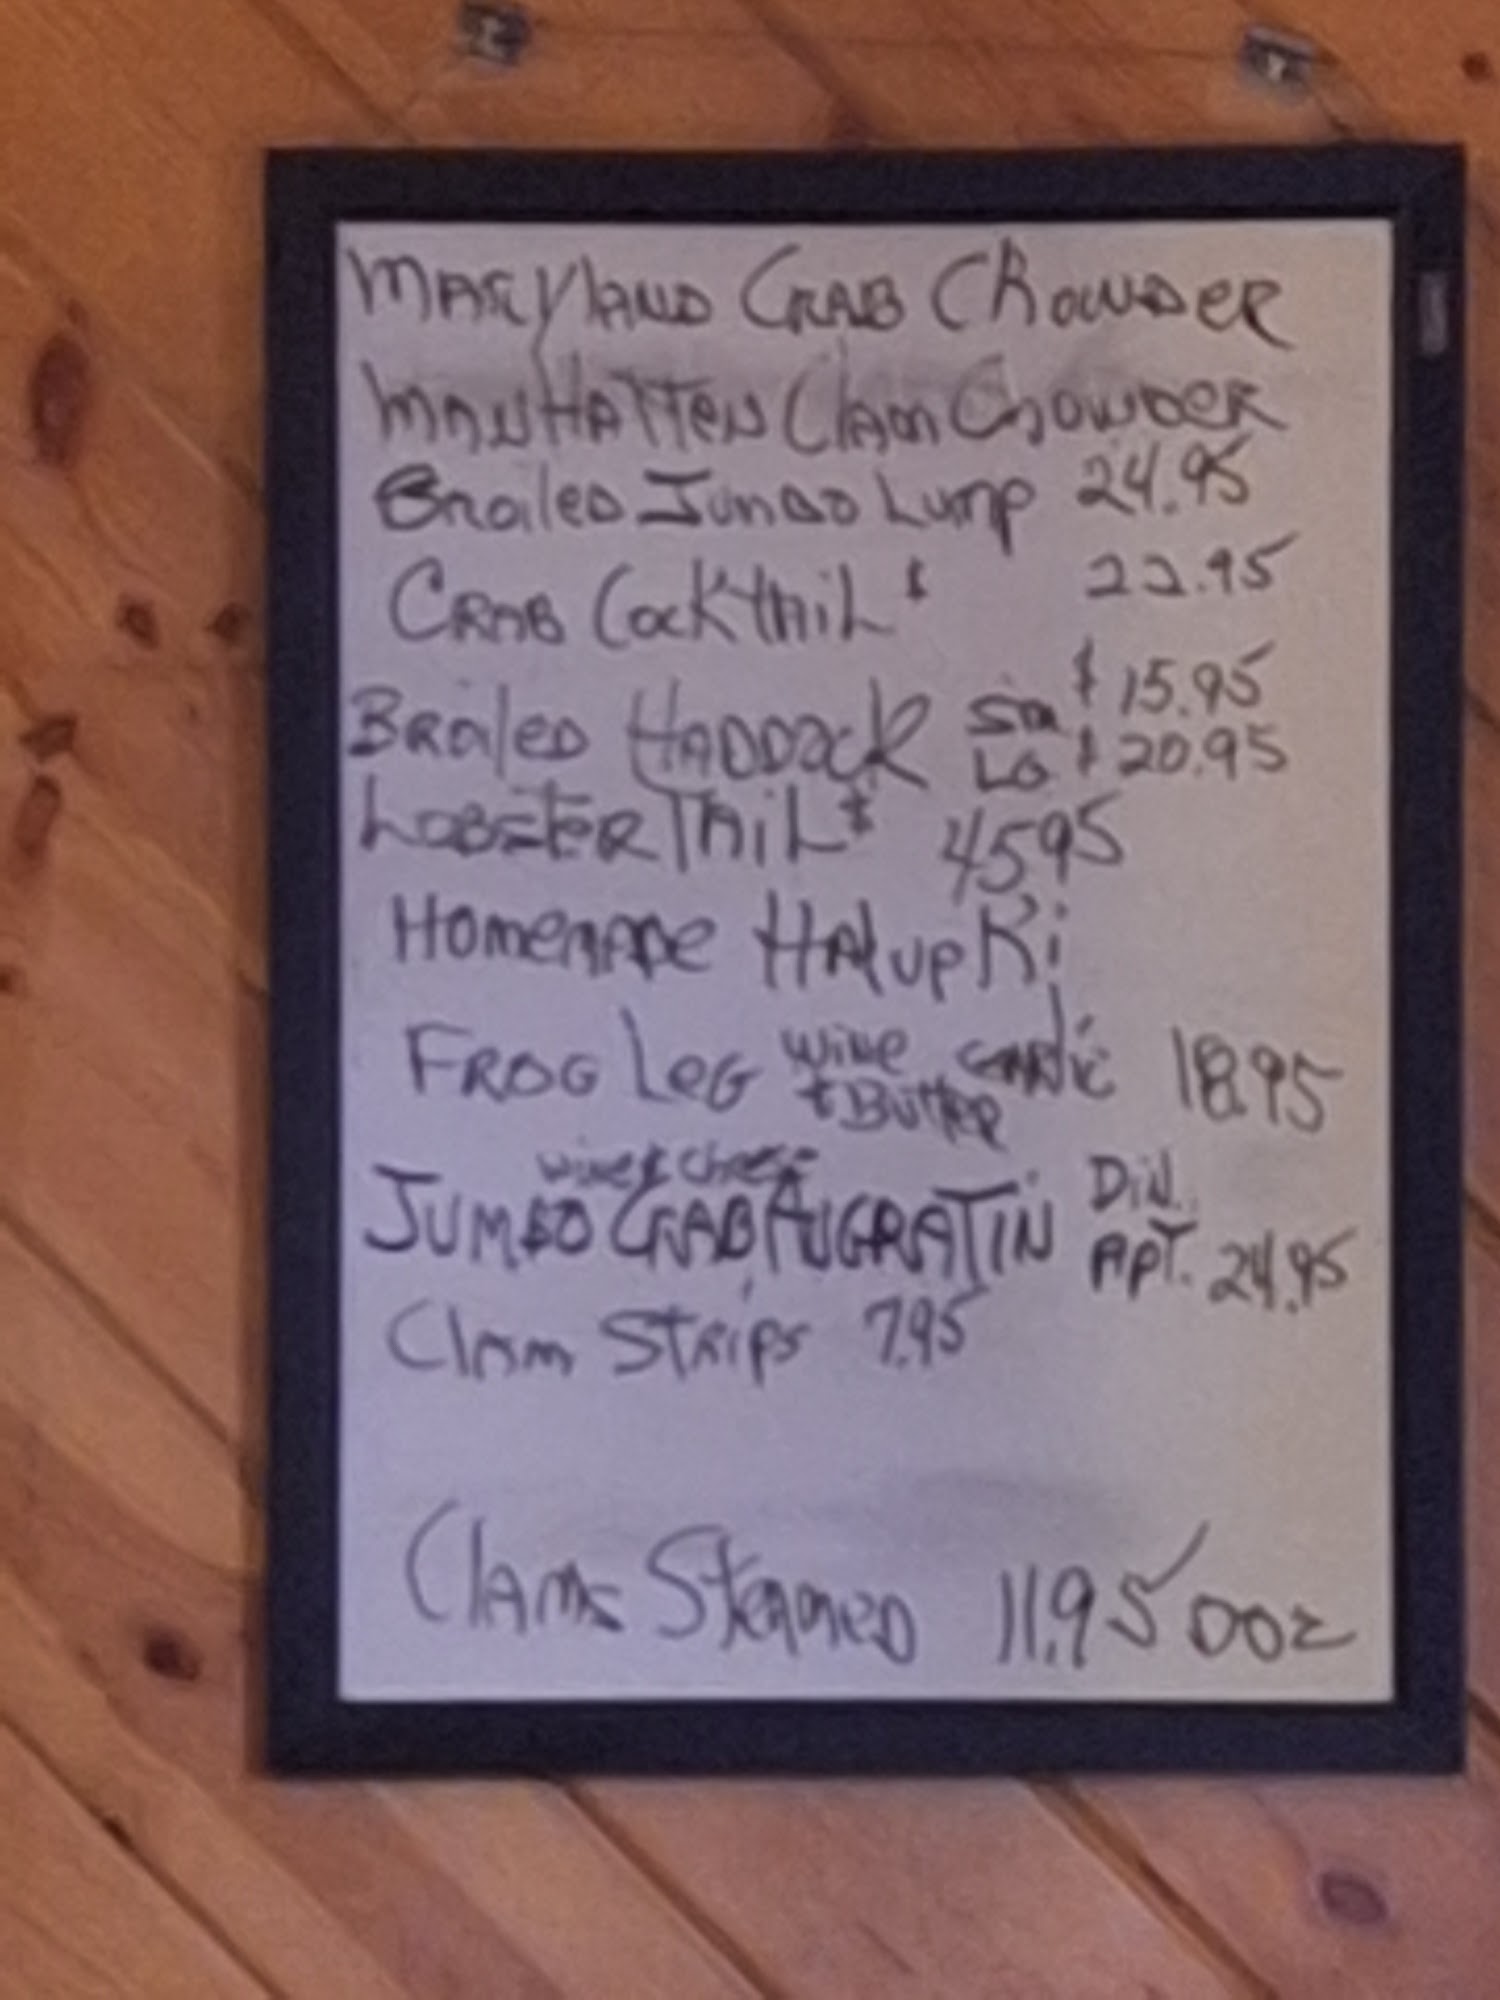 MARYLAND CRAB CHOWDER
MANHATTEN CLAM CHOWDER
BROILED JUMBO LUMP 24.95
CRAB COCKTAIL $ 22.95
BROILED HADDOCK SM $ 15.95
LG $ 20.95
LOBSTER TAIL $ 45 95
HOMEMADE HALUPKI
FROG LEG WINE GARLIC 18.95
+ BUTTER
WINE & CHEESE
JUMBO CRAB AUGRATIN DIN.
APT. 24.95
CLAM STRIPS 7.95
CLAMS STEAMED 11.95 DOZ